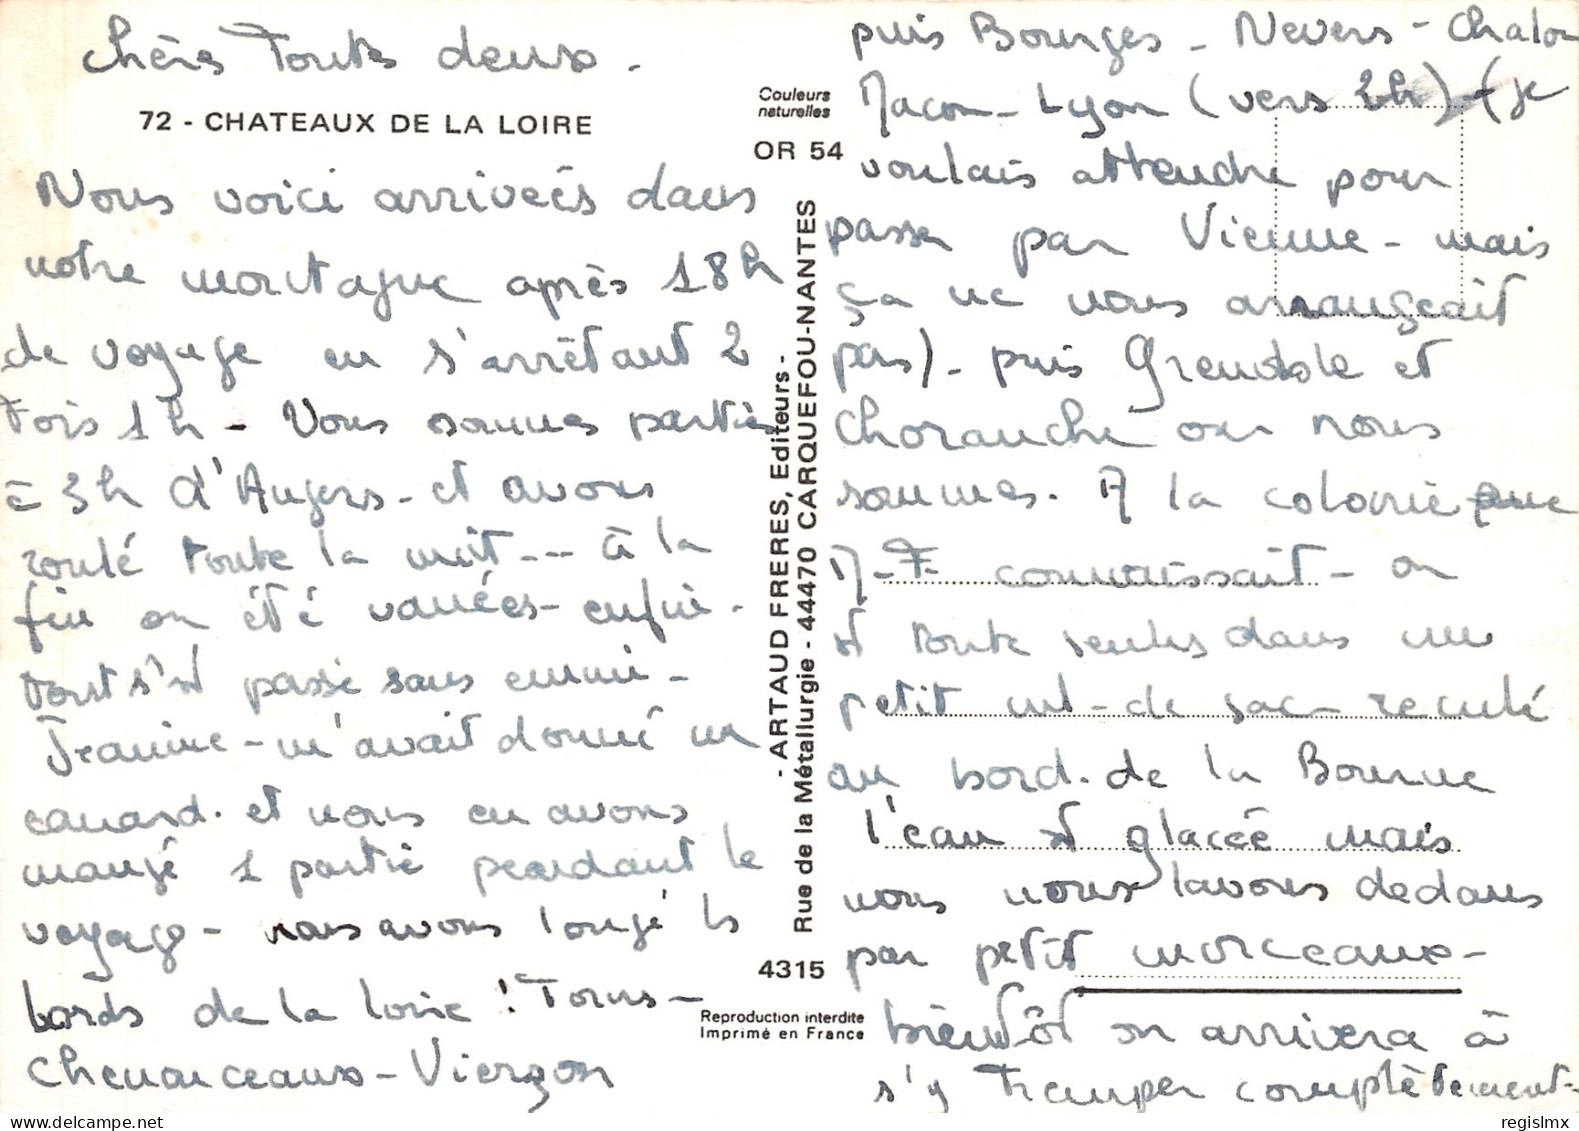 Chères Toutes deux.
72 - CHATEAUX DE LA LOIRE
Nous voici arrivées dans
notre montagne après 18h
de voyage en s'arrêtant 2
Fois 1h - Nous sommes parties
à 3h d'Angers - et avons
roulé toute la nuit --- à la
fin on été vanées - enfin.
tout s'est passé sans ennui -
Jeanine - m'avait donné un
canard. et nous en avons
mangé 1 partie peardant le
voyage - nous avons longé ls
bords de la loire ! Tours -
Chenonceaux - Vierzon
Couleurs
naturelles
OR 54
- ARTAUD FRERES, Editeurs -
Rue de la Métallurgie - 44470 CARQUEFOU-NANTES
4315
Reproduction interdite
Imprimé en France
puis Bourges - Nevers - Chalon
Macon - Lyon (vers 2h) - (je
voulais attendre pour
passer par Vienne - mais
ça ne nous arrangeait
pas) - puis Grenoble et
Choranche ou nous
sommes. A la colonie que
M-F. connaissait - on
est toute seules dans un
petit cul-de sac - reculé
au bord. de la Bourne
l'eau est glacée mais
nous nous lavons dedans
par petit morceaux -
bientôt on arrivera à
s'y tremper complètement -
regislmx